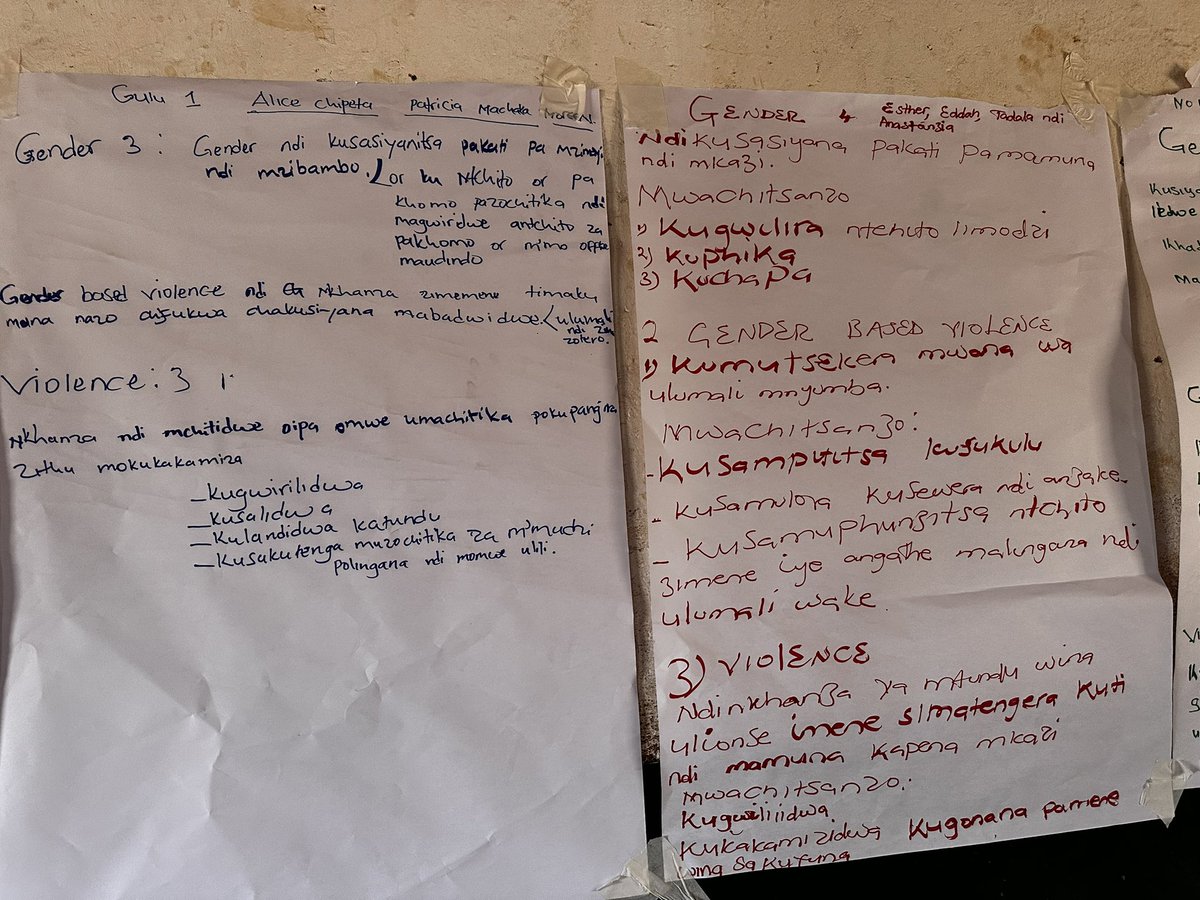 Gulu 1 Alice Chipeta Patricia Machaka
Gender 3 : Gender ndi kusasiyanitsa pakati pa
ndi mzibambo. or ku Ntchito or pa
khomo pazochitika ndi
magwiridwe antchito za
pakhomo or mimo
maudindo
Gender based violence ndi Nkhanza zimemene timaku
mana nazo chifukwa chakusiyana mabadwidwe. ulumali
ndi
zotero.
Violence : 3
Nkhanza ndi mchitidwe oipa omwe umachitika pokupangira
Zithu mokukakamiza
– kugwirilidwa
– kusalidwa
– kulandidwa katundu
– kusakutenga muzochitika za m'mudzi
polingana ndi momwe ulili.
GENDER 4 Esther, Eddah, Tadala ndi
Anastanzia
Ndi kusasiyana pakati pamamuna
ndi mkazi.
Mwachitsanzo
1) Kugwilira ntchito limodzi
2) Kuphika
3) Kuchapa
2 GENDER BASED VIOLENCE
1) Kumutsekera mwana wa
ulumali mnyumba.
Mwachitsanzo:
- Kusamputitsa kusukulu
- Kusamulola kusewera ndi anzake
- Kusamuphunzitsa ntchito
zimene iye angathe malingana ndi
ulumali wake.
3) VIOLENCE
Ndi nkhanza ya mtundu wina
ulionse imene simatengera kuti
ndi mamuna kapena mkazi
Mwachitsanzo:
Kugwiliridwa
Kukakamizidwa kugonana pamene
wina sakufuna